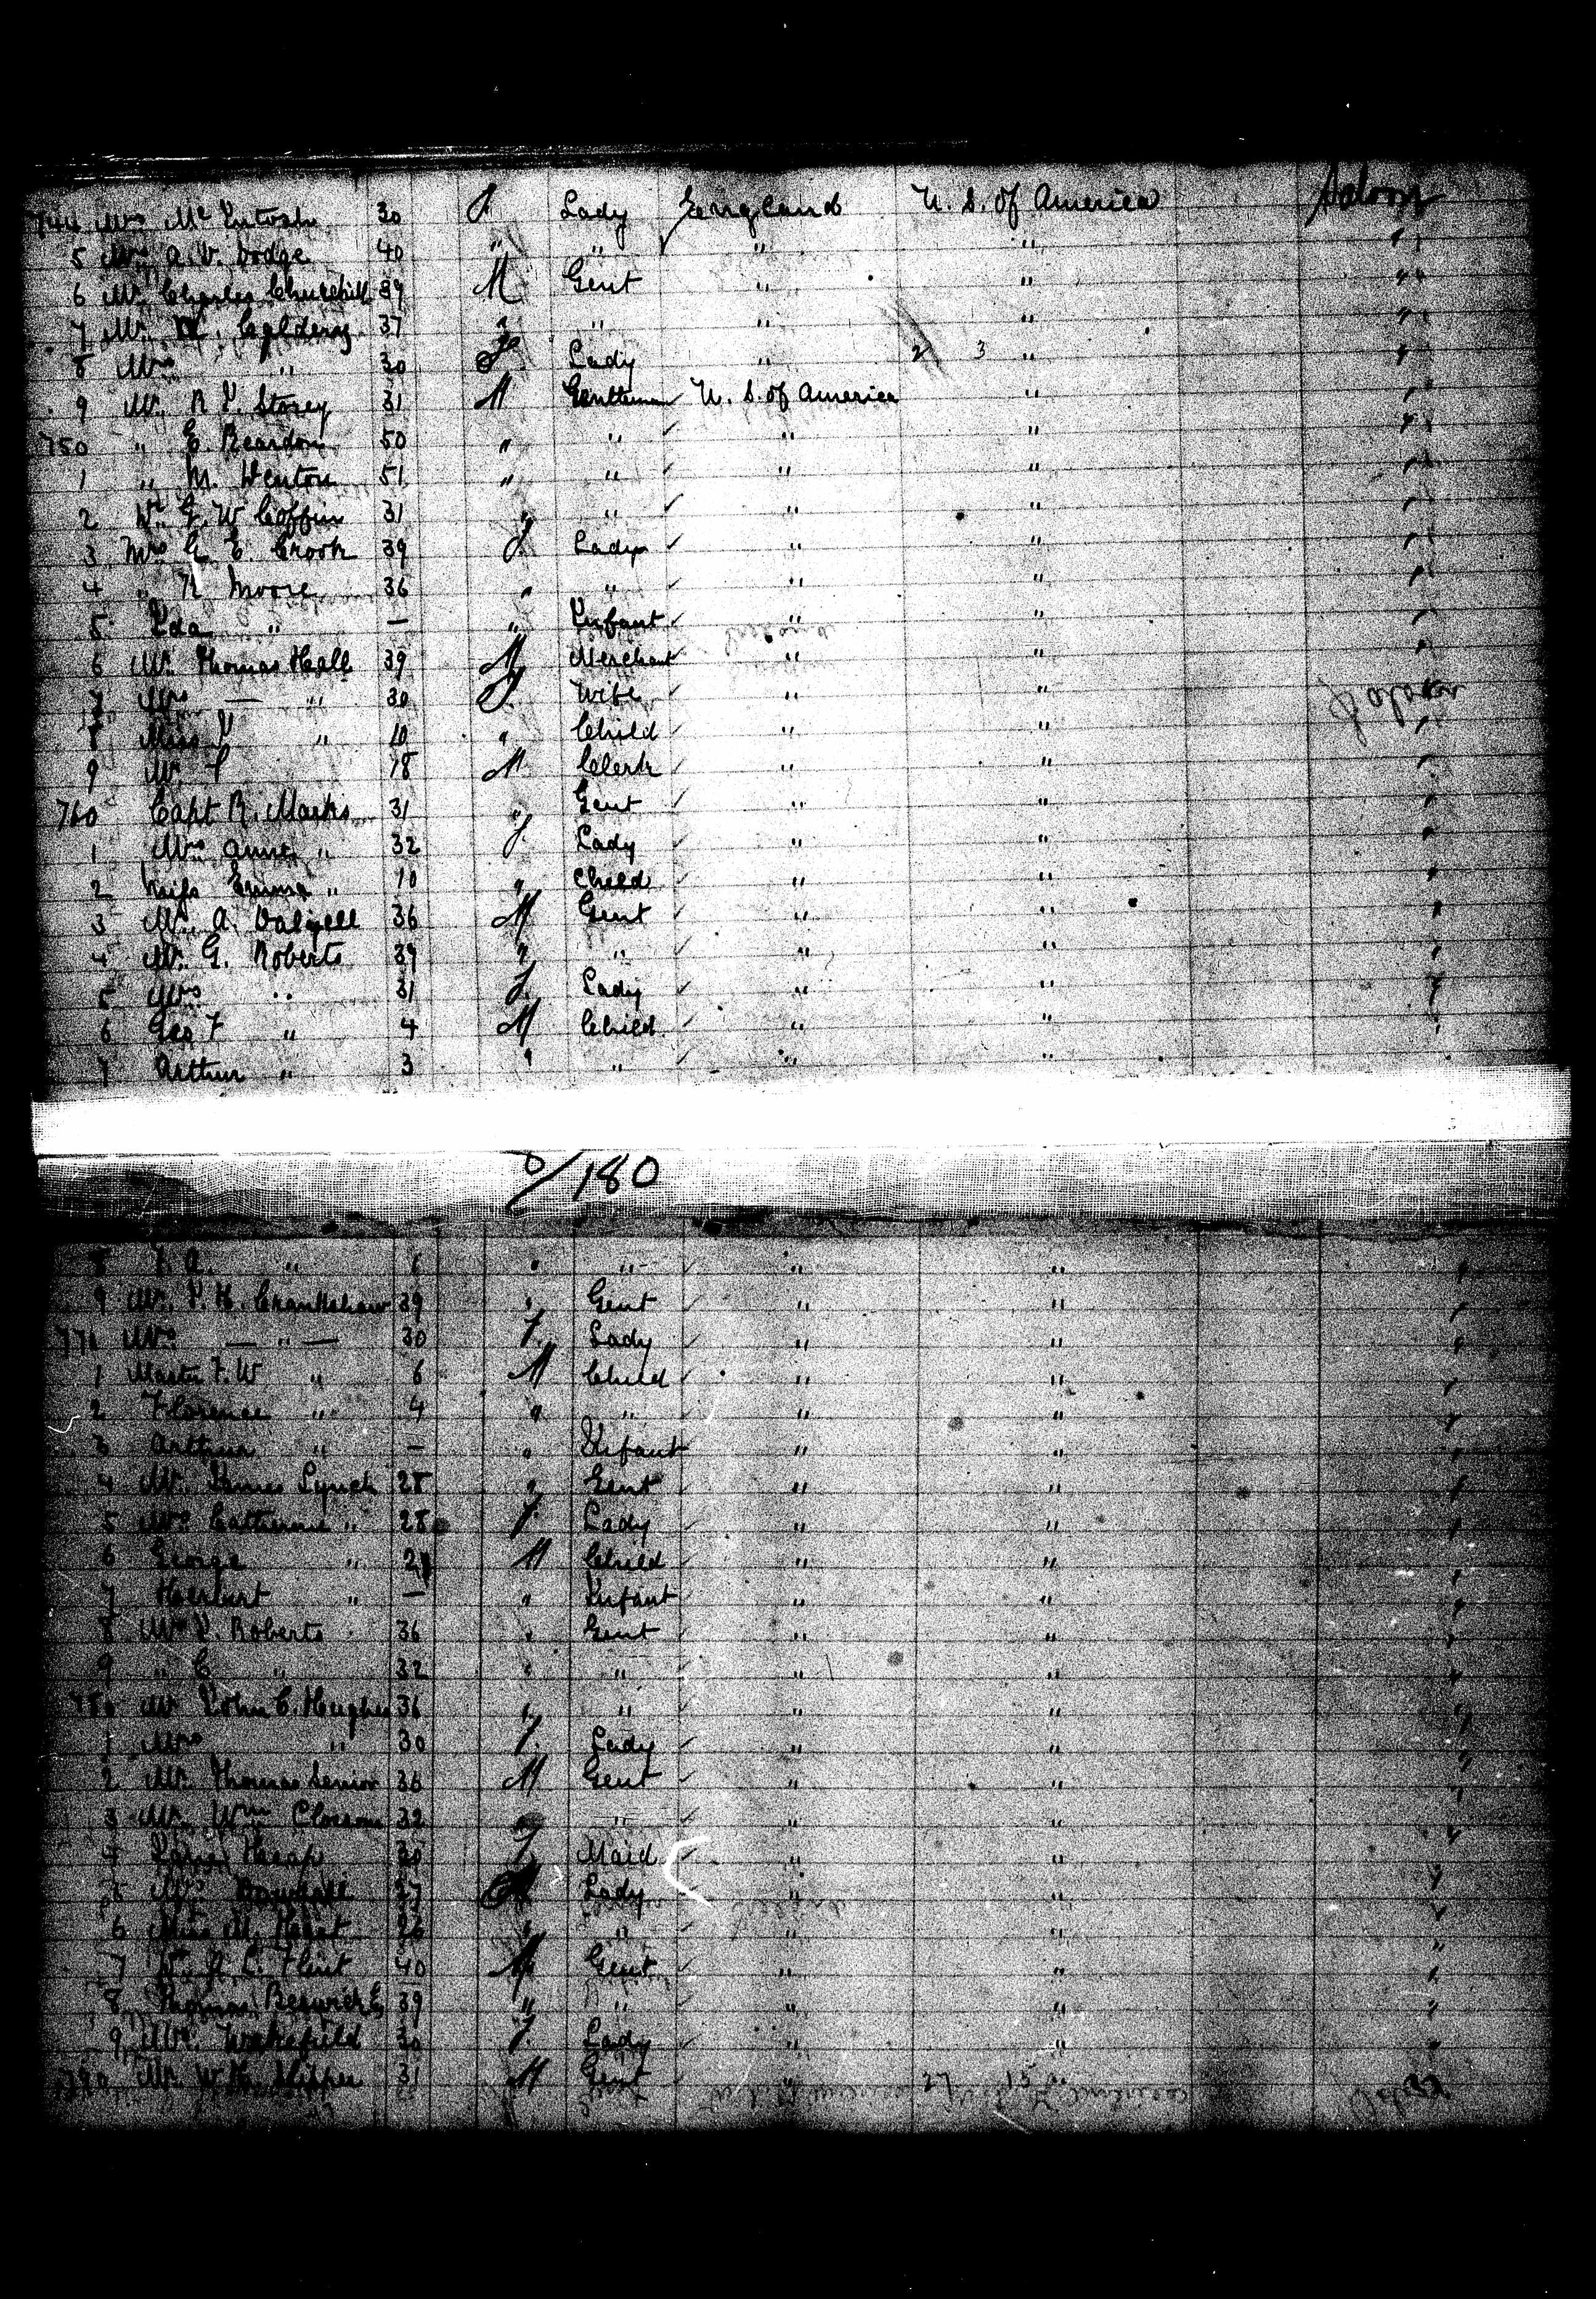 744 Mrs McIntosh 30 F. Lady England U. S. of America Saloon
5 Mrs A. V. Dodge 40 " " " " "
6 Mr. Charles Churchill 39 M Gent " " "
7 Mr. 37 " " " " "
8 Mrs " 30 F Lady " 2 3 " "
9 Mr. R I. Storey 31 M Gentleman U. S. of America " "
750 " E. Reardon 50 " " " " "
1 " M. Denton 51 " " " " "
2 Dr. G. W Coffin 31 " " " " "
3 Mrs G. E. Crook 39 F. Lady " " "
4 " K Moore 36 " " " " "
5 Ida " — " Infant " " "
6 Mr. Thomas Hall 39 M Merchant " " "
7 Mrs — " 30 F. Wife " "
8 Miss I " 10 " Child " " "
9 Mr. F 18 M Clerk " " "
760 Capt R. Marks 31 " Gent " " "
1 Mrs Anne " 32 F. Lady " " "
2 Miss Emma " 10 " Child " " "
3 Mr. A. Dalzell 36 M Gent " " "
4 Mr. G. Roberts 39 " " " " "
5 Mrs " 31 F. Lady " " "
6 Geo F " 4 M Child " " "
7 Arthur " 3 " " " "
/180
8 F. A. " 1 " " " " "
9 Mr. I. H. Crankshaw 39 " Gent " " "
Mrs — " — 30 F. Lady " " "
1 Master F. W " 6 M Child " " "
2 Florence " 4 " " " " "
3 Arthur " — " Infant " " "
4 Mr. James Lynch 28 " Gent " " "
5 Mrs Catherine " 28 F. Lady " " "
6 George " 2 M Child " " "
7 Herbert " — " Infant " " "
8 Mr I. Roberts 36 " Gent " " "
9 " C " 32 " " " " "
780 Mr John C. Hughes 36 " " " " "
1 Mrs " 30 F. Lady " " "
2 Mr. Thomas Senior 36 M Gent " " "
3 Mr. Wm Closson 32 " " " " "
4 Jane Heap 30 F. Maid " " "
5 Mrs 27 Lady " " "
6 Miss M. Hart 26 " " " " "
7 A. C. Flint 40 M Gent " " "
8 Thomas Beswick 39 " " " " "
9 Mrs. Wakefield 30 F. Lady " " "
790 Mr. W. H. 31 M Gent " 27 15 "